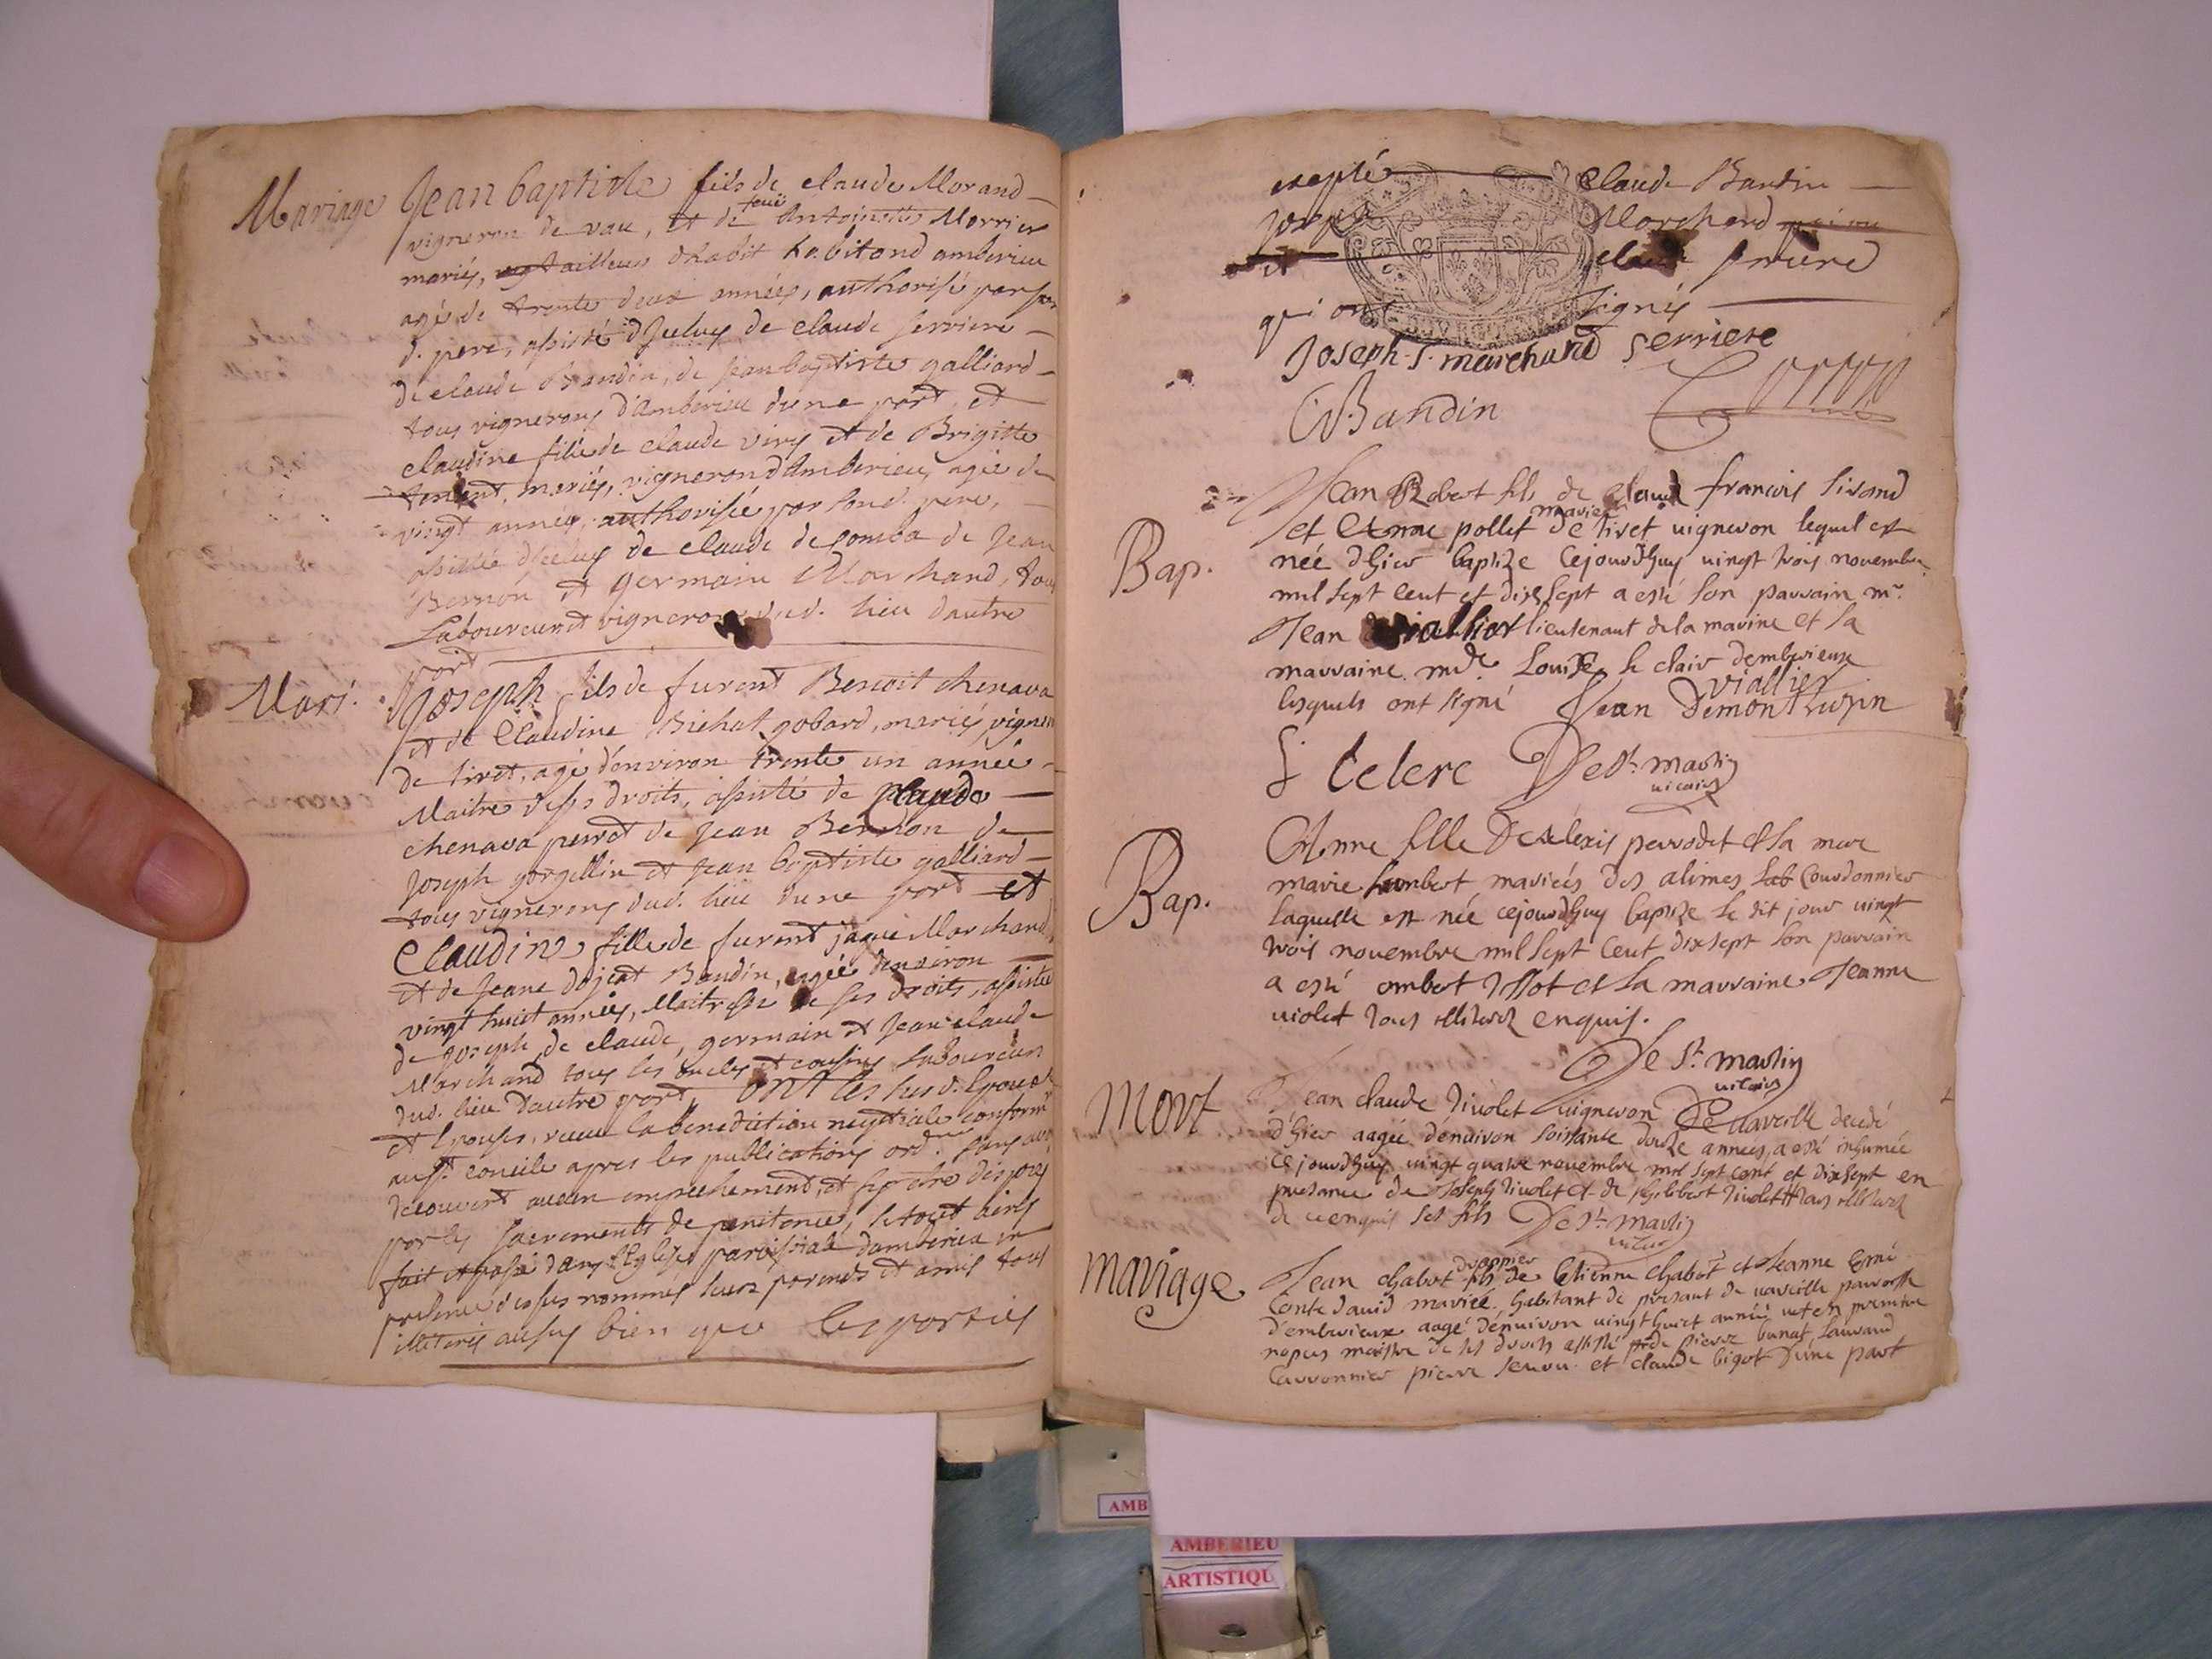 Mariage Jean baptiste fils de claude Morand
vigneron de vau, et de feüe Antoinette Morrier
mariés, tailleur d'habit habitand amberieu
agé de trente deux années, authorisé par son
d. pere, assisté d'Jceluy de claude serriere
de claude Bandin, de Jean baptiste galliard
tous vignerons d'amberieu d'une part, et
claudine fille de claude viry et de Brigitte
tenent, mariés, vigneron d'Amberieu, agée de
vingt années, authorisée par sond. pere,
assistée d'Jceluy de claude de comba de Jean
Bernon et germain Marchand, tous
Laboureur et vignerons dud. lieu dautre
part
Mari. Joseph fils de furent Benoit chenava
et de Claudine Bichat gobard, mariés, vigneron
de tiret, agé d'environ trente un année
Maitre de ses droits, assisté de claude
chenava perrot de Jean Bernon de
Joseph gorgellin et Jean baptiste galliard
tous vignerons dud. lieu dune part et
Claudine fille de furent jaque Marchand
et de Jeane dojeat Bandin, agée denviron
vingt huict années, Maitresse de ses droits, assistée
de Joseph, de claude, germain et Jean claude
Marchand tous les oncles et cousins Laboureurs
dud. lieu dautre part, ont les susd. Epoux
et Epouses, receu la benediction nuptiale conformt
au st. concile apres les publications ord.res sans avoir
decouvert aucun empechement, et se etre disposés
par les sacrements de penitence, le tout ainsy
fait et passé dans l'Eglise paroissiale damberieu en
presence dessus nommés leurs parends et amis tous
illiterés aussy bien que les parties
excepté Claude Bandin
Joseph Marchand
et claude serriere
qui ont signés
Joseph S. marchand serriere
C Bandin
Jean Robert fils de claude francois sirand
et Anne pollet mariés de tiret vigneron lequel est
née dhier baptize cejourdhuy vingt trois novembre
Bap.
mil sept cent et dix sept a esté son parrain mr.
Jean viallier lieutenant de la marine et sa
marraine mde Louise le clair demberieux
lesquels ont signé Jean viallier Demontluzin
L Celerc De St. martin
vicaire
Anne fille De alexis perrodet et sa mere
marie humbert mariées des alimes Courdonnier
Bap.
laquelle est née cejourdhuy baptize le dit jour vingt
trois novembre mil sept cent dix sept son parrain
a esté ombert et sa marraine Jeanne
violet tous illiterez enquis.
De St. martin
vicaire
Mort Jean claude tivolet vigneron De vareille decedé
dhier aagée denviron soixante douze années, a esté inhumée
cejourdhuy vingt quatre novembre mil sept cent et dix sept en
presance de Joseph tivolet et de philibert tivolet tous illiterez
de ce enquis ses fils De St. martin
vicaire
Mariage Jean chabot drappier fils de Etienne chabot et Jeanne
Conte david mariée, habitant de presant de vareille parroisse
d'emberieux aagé denviron vingt huict année et en premiere
nopces maistre de ses droits assisté de pierre bunat
Carronnier pierre et claude bigot dune part
AMB
AMBERIEU
ARTISTIQU